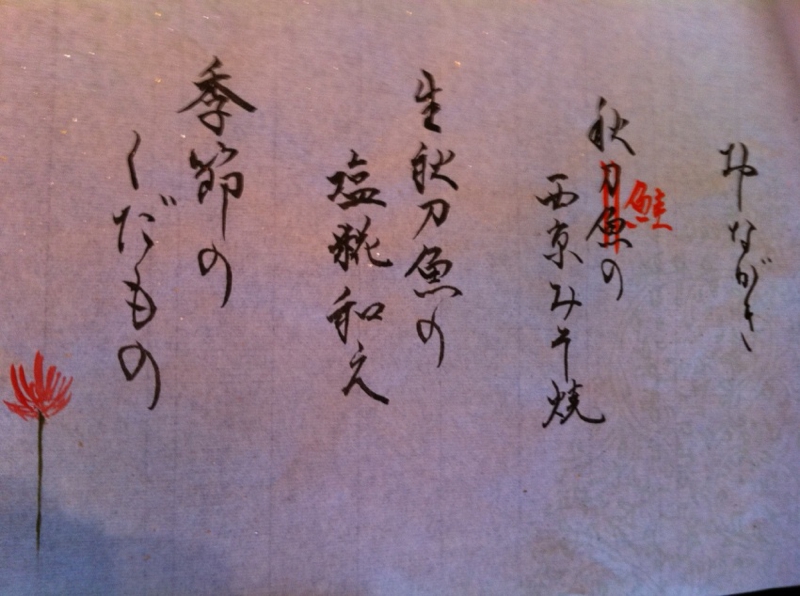 おしながき
秋刀魚の
鮭
西京みそ焼
生秋刀魚の
塩糀和え
季節の
くだもの